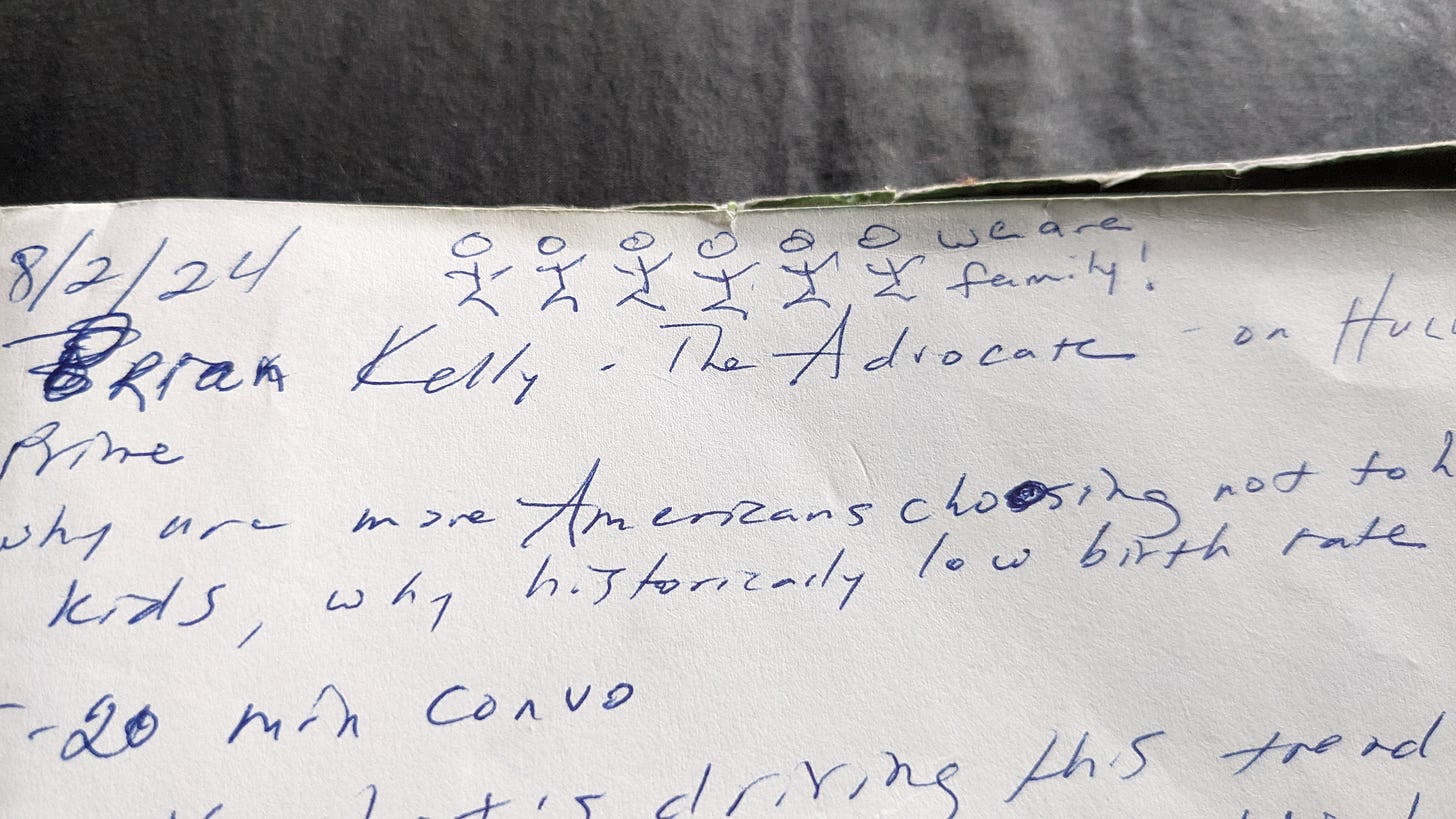 8/2/24
we are
family!
Brian Kelly - The Advocate - on
Prime
why are more Americans choosing not to
kids, why historically low birth rate
- 20 min convo
is driving this trend